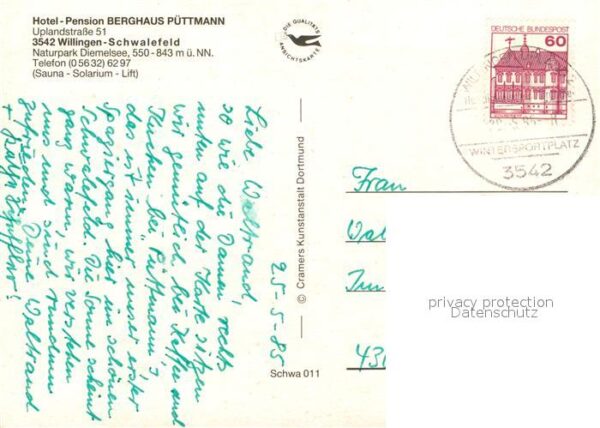 Hotel - Pension BERGHAUS PÜTTMANN
Uplandstraße 51
3542 Willingen-Schwalefeld
Naturpark Diemelsee, 550 - 843 m ü. NN.
Telefon (0 56 32) 62 97
(Sauna - Solarium - Lift)
DIE QUALITÄTS
ANSICHTSKARTE
25-5-85
Liebe Waltraud,
so wie die Damen rechts
unten auf der Karte sitzen
wir gemütlich bei Kaffee und
Kuchen bei Püttmann's
das ist immer unser erster
Spaziergang hier im schönen
Schwalefeld. Die Sonne scheint
ganz warm, wir verstehen
uns und sind rundum
zufrieden. Deine Waltraud
© Cramers Kunstanstalt Dortmund
Schwa 011
DEUTSCHE BUNDESPOST
60
WINTERSPORTPLATZ
3542
Frau
Wal
Im
43
privacy protection
Datenschutz